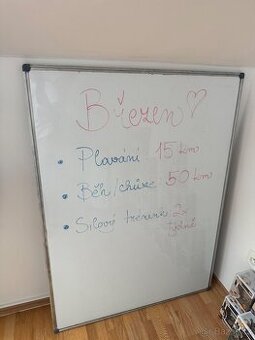 Březen ♡
• Plavání 15 km
• Běh/chůze 50 km
• Silový trénink 2x
týdně